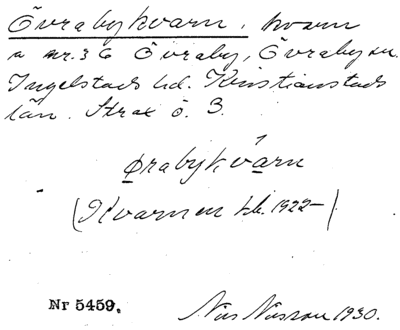 Övrabykvarn, kvarn
a nr. 36 Övraby, Övraby sn.
Ingelstads hd. Kristianstads
län. Strax ö. 3.
ørabykvàrn
(Kvarnen t.k. 1922-)
Nr 5459. Nils Nilsson 1930.